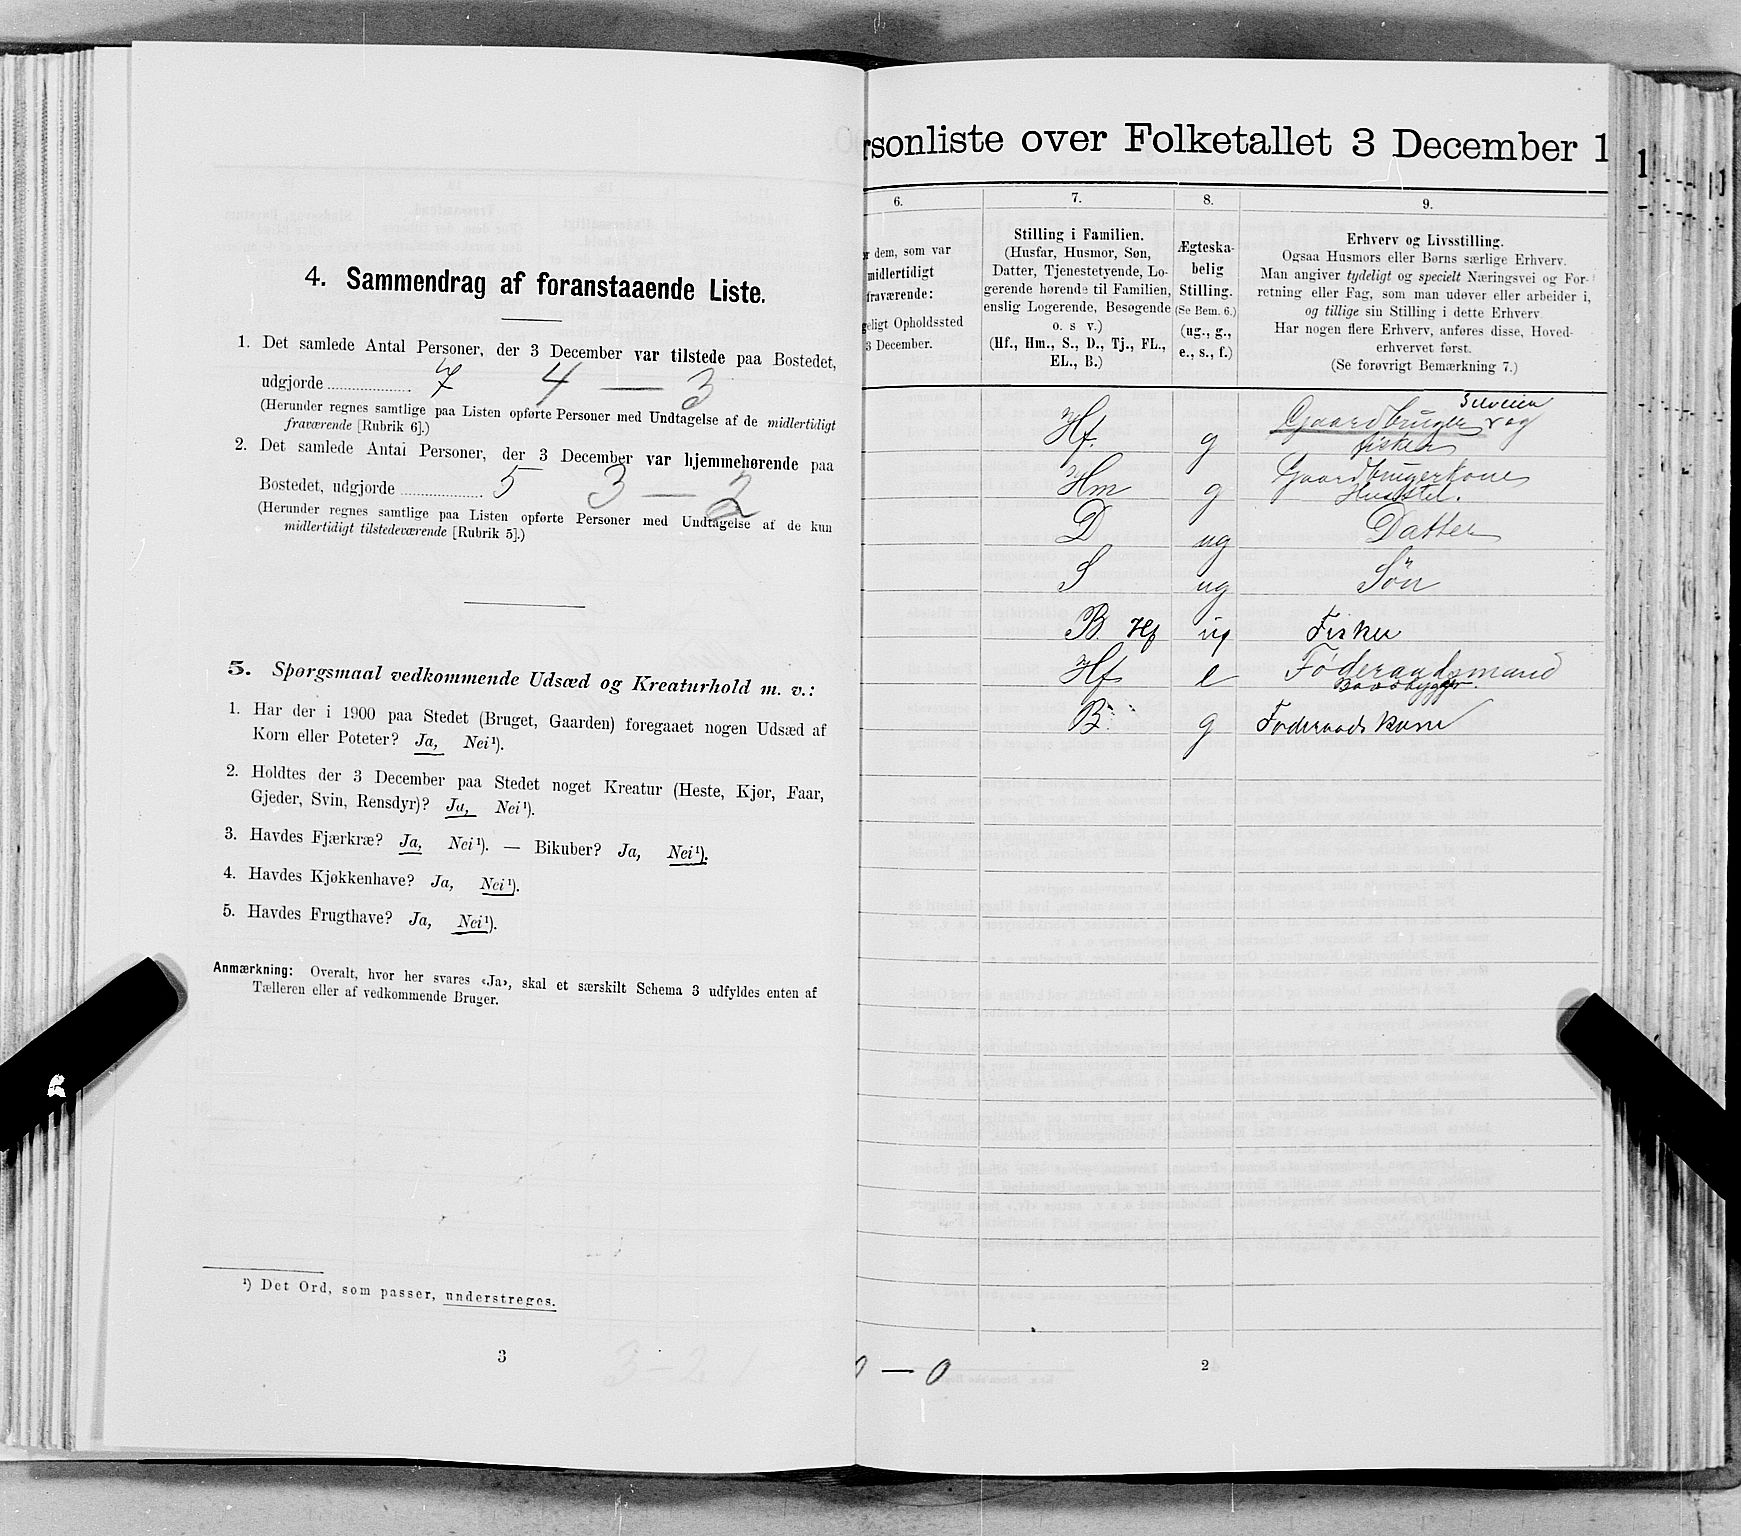 4. Sammendrag af foranstaaende Liste.
1. Det samlede Antal Personer, der 3 December var tilstede paa Bostedet,
udgjorde 7 4 — 3
(Herunder regnes samtlige paa Listen opførte Personer med Undtagelse af de midlertidigt
fraværende [Rubrik 6].)
2. Det samlede Antal Personer, der 3 December var hjemmehørende paa
Bostedet, udgjorde 5 3 — 2
(Herunder regnes samtlige paa Listen opførte Personer med Undtagelse af de kun
midlertidigt tilstedeværende [Rubrik 5].)
5. Spørgsmaal vedkommende Udsæd og Kreaturhold m. v.:
1. Har der i 1900 paa Stedet (Bruget, Gaarden) foregaaet nogen Udsæd af
Korn eller Poteter? Ja, Nei¹).
2. Holdtes der 3 December paa Stedet noget Kreatur (Heste, Kjør, Faar,
Gjeder, Svin, Rensdyr)? Ja, Nei¹).
3. Havdes Fjærkræ? Ja, Nei¹). — Bikuber? Ja, Nei¹).
4. Havdes Kjøkkenhave? Ja, Nei¹).
5. Havdes Frugthave? Ja, Nei¹).
Anmærkning: Overalt, hvor her svares «Ja», skal et særskilt Schema 3 udfyldes enten af
Tælleren eller af vedkommende Bruger.
¹) Det Ord, som passer, understreges.
3
rsonliste over Folketallet 3 December 1
6. 7. 8. 9.
r dem, som var
midlertidigt
fraværende:
geligt Opholdssted
3 December.
Stilling i Familien.
(Husfar, Husmor, Søn,
Datter, Tjenestetyende, Lo-
gerende hørende til Familien,
enslig Logerende, Besøgende
o. s v.)
(Hf., Hm., S., D., Tj., FL.,
EL., B.)
Ægteska-
belig
Stilling.
(Se Bem. 6.)
(ug., g.,
e., s., f.)
Erhverv og Livsstilling.
Ogsaa Husmors eller Børns særlige Erhverv.
Man angiver tydeligt og specielt Næringsvei og For-
retning eller Fag, som man udøver eller arbeider i,
og tillige sin Stilling i dette Erhverv
Har nogen flere Erhverv, anføres disse, Hoved-
erhvervet først.
(Se forøvrigt Bemærkning 7.)
Selveier
Hf. g Gaardbruger og
fisker
Hm g Gaardbrugerkone
Husstel.
D ug Datter
S ug Søn
B. Hf ug Fisker
Hf e Føderaadsmand
Baadbygger.
B. g Føderaads kone
0 — 0
2